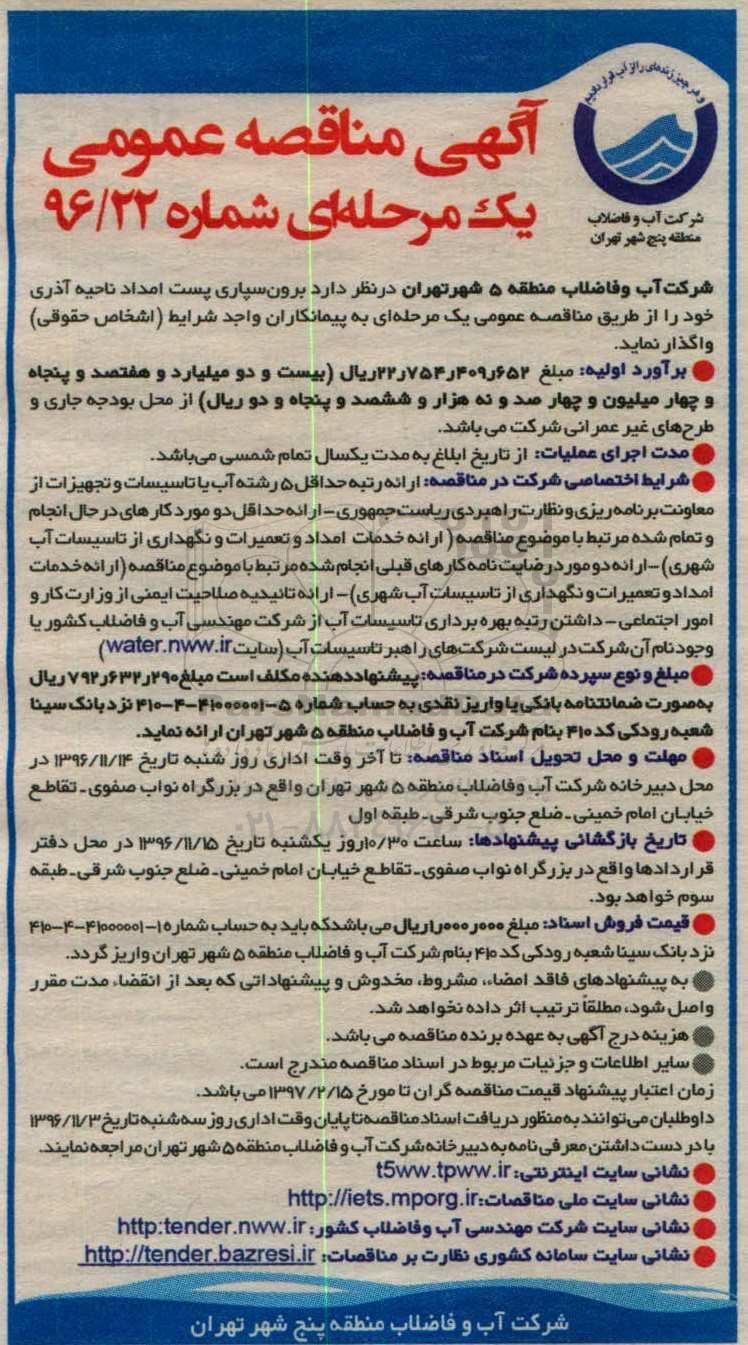 و هر چیز زنده‌ای را از آب قرار دادیم
شرکت آب و فاضلاب
منطقه پنج شهر تهران
آگهی مناقصه عمومی
یک مرحله‌ای شماره ۹۶/۲۲
شرکت آب وفاضلاب منطقه ۵ شهرتهران درنظر دارد برون‌سپاری پست امداد ناحیه آذری
خود را از طریق مناقصه عمومی یک مرحله‌ای به پیمانکاران واجد شرایط (اشخاص حقوقی)
واگذار نماید.
برآورد اولیه: مبلغ ۲۲ر۷۵۴ر۴۰۹ر۶۵۲ریال (بیست و دو میلیارد و هفتصد و پنجاه
و چهار میلیون و چهار صد و نه هزار و ششصد و پنجاه و دو ریال) از محل بودجه جاری و
طرح‌های غیر عمرانی شرکت می باشد.
مدت اجرای عملیات: از تاریخ ابلاغ به مدت یکسال تمام شمسی می‌باشد.
شرایط اختصاصی شرکت در مناقصه: ارائه رتبه حداقل ۵ رشته آب یا تاسیسات و تجهیزات از
معاونت برنامه ریزی و نظارت راهبردی ریاست جمهوری - ارائه حداقل دو مورد کار های در حال انجام
و تمام شده مرتبط با موضوع مناقصه ( ارائه خدمات امداد و تعمیرات و نگهداری از تاسیسات آب
شهری) - ارائه دو مورد رضایت نامه کارهای قبلی انجام شده مرتبط با موضوع مناقصه (ارائه خدمات
امداد و تعمیرات و نگهداری از تاسیسات آب شهری) - ارائه تائیدیه صلاحیت ایمنی از وزارت کار و
امور اجتماعی - داشتن رتبه بهره برداری تاسیسات آب از شرکت مهندسی آب و فاضلاب کشور یا
وجود نام آن شرکت در لیست شرکت‌های راهبر تاسیسات آب (سایت water.nww.ir)
مبلغ و نوع سپرده شرکت در مناقصه: پیشنهاددهنده مکلف است مبلغ ۷۹۲ر۶۳۲ر۲۹۰ ریال
به‌صورت ضمانتنامه بانکی یا واریز نقدی به حساب شماره ۵-۴۱۰۰۰۰۰۱-۴-۴۱۰ نزد بانک سینا
شعبه رودکی کد ۴۱۰ بنام شرکت آب و فاضلاب منطقه ۵ شهر تهران ارائه نماید.
مهلت و محل تحویل اسناد مناقصه: تا آخر وقت اداری روز شنبه تاریخ ۱۳۹۶/۱۱/۱۴ در
محل دبیرخانه شرکت آب وفاضلاب منطقه ۵ شهر تهران واقع در بزرگراه نواب صفوی - تقاطع
خیابان امام خمینی - ضلع جنوب شرقی - طبقه اول
تاریخ بازگشائی پیشنهادها: ساعت ۱۰/۳۰روز یکشنبه تاریخ ۱۳۹۶/۱۱/۱۵ در محل دفتر
قراردادها واقع در بزرگراه نواب صفوی - تقاطع خیابان امام خمینی - ضلع جنوب شرقی - طبقه
سوم خواهد بود.
قیمت فروش اسناد: مبلغ ۱ر۰۰۰ر۰۰۰ریال می باشدکه باید به حساب شماره ۱-۴۱۰۰۰۰۰۱-۴-۴۱۰
نزد بانک سینا شعبه رودکی کد ۴۱۰ بنام شرکت آب و فاضلاب منطقه ۵ شهر تهران واریز گردد.
به پیشنهادهای فاقد امضاء، مشروط، مخدوش و پیشنهاداتی که بعد از انقضاء مدت مقرر
واصل شود، مطلقاً ترتیب اثر داده نخواهد شد.
هزینه درج آگهی به عهده برنده مناقصه می باشد.
سایر اطلاعات و جزئیات مربوط در اسناد مناقصه مندرج است.
زمان اعتبار پیشنهاد قیمت مناقصه گران تا مورخ ۱۳۹۷/۲/۱۵ می باشد.
داوطلبان می‌توانند به منظور دریافت اسناد مناقصه تا پایان وقت اداری روز سه شنبه تاریخ ۱۳۹۶/۱۱/۳
با در دست داشتن معرفی نامه به دبیرخانه شرکت آب و فاضلاب منطقه ۵ شهر تهران مراجعه نمایند.
نشانی سایت اینترنتی: t5ww.tpww.ir
نشانی سایت ملی مناقصات: http://iets.mporg.ir
نشانی سایت شرکت مهندسی آب وفاضلاب کشور: http:tender.nww.ir
نشانی سایت سامانه کشوری نظارت بر مناقصات: http://tender.bazresi.ir
شرکت آب و فاضلاب منطقه پنج شهر تهران